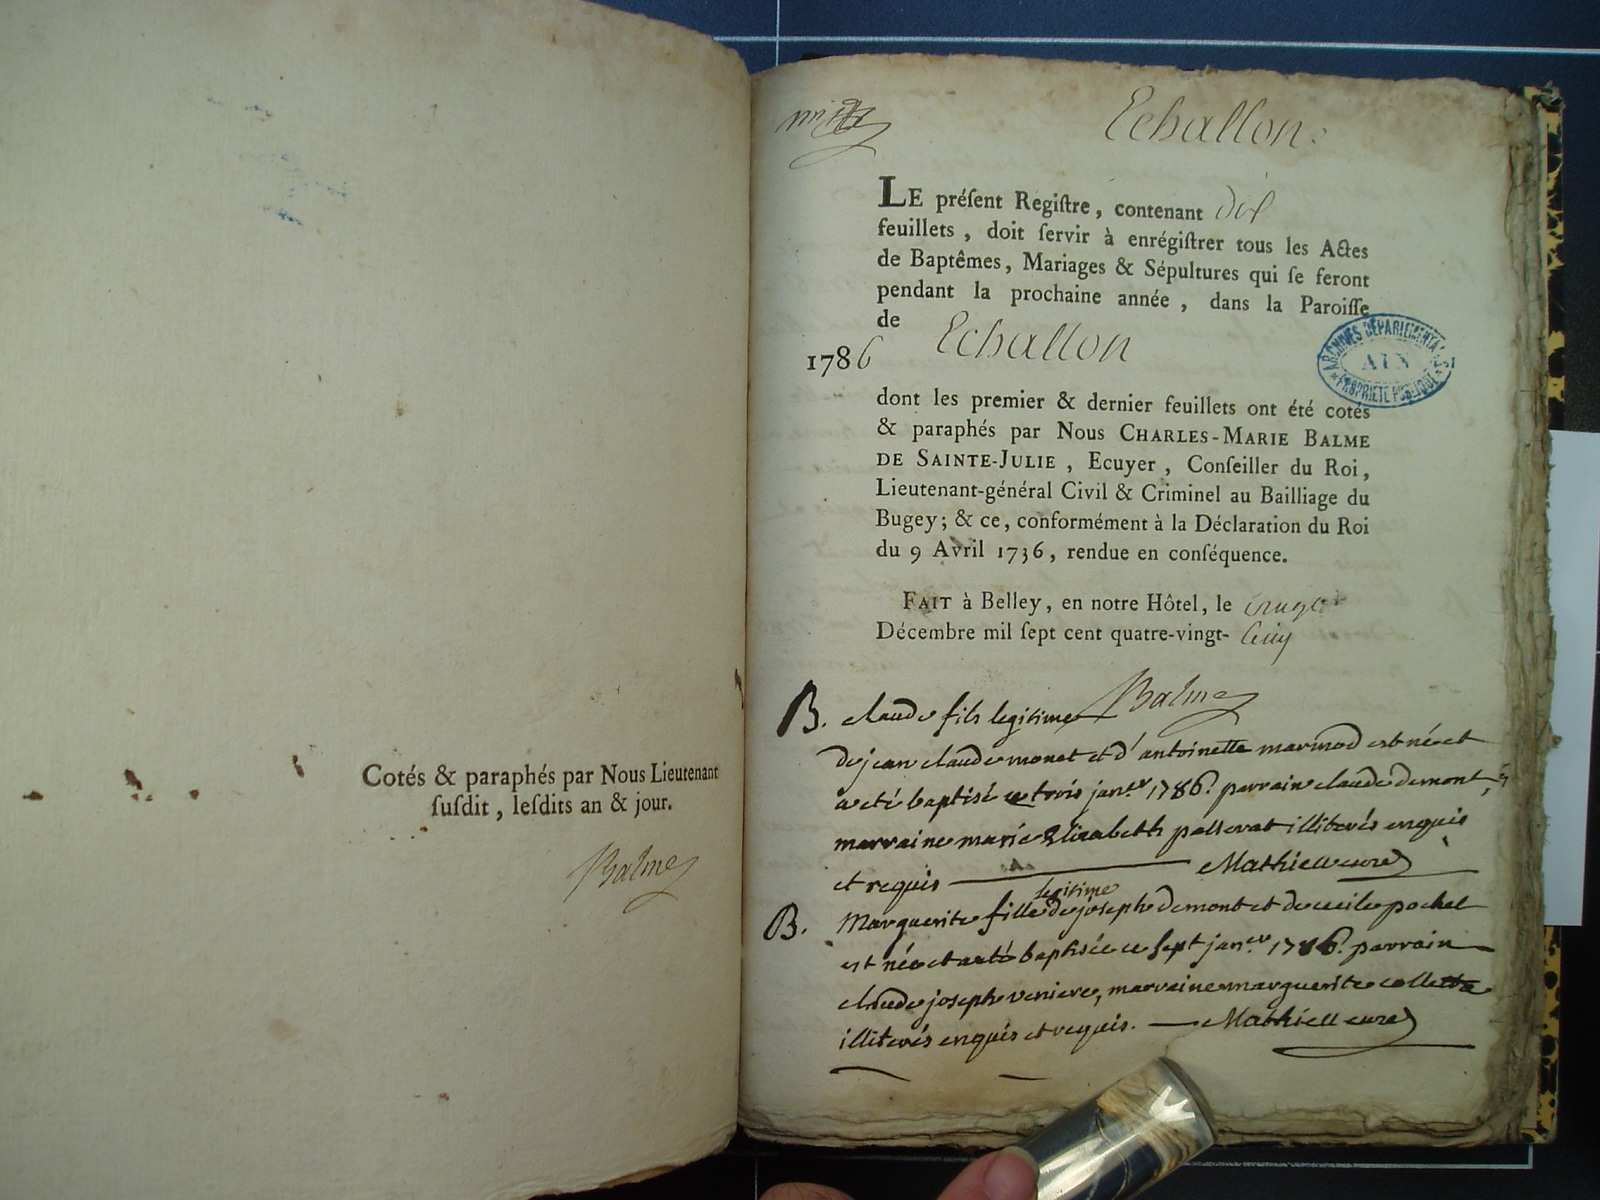 Cotés & paraphés par Nous Lieutenant
ſuſdit, leſdits an & jour.
Balme
Echallon
LE préſent Regiſtre, contenant dix
feuillets, doit ſervir à enrégiſtrer tous les Actes
de Baptêmes, Mariages & Sépultures qui ſe feront
pendant la prochaine année, dans la Paroiſſe
de Echallon
1786
ARCHIVES DÉPARTEMENTALES
AIN
PROPRIÉTÉ PUBLIQUE
dont les premier & dernier feuillets ont été cotés
& paraphés par Nous CHARLES-MARIE BALME
DE SAINTE-JULIE, Ecuyer, Conſeiller du Roi,
Lieutenant-général Civil & Criminel au Bailliage du
Bugey; & ce, conformément à la Déclaration du Roi
du 9 Avril 1736, rendue en conſéquence.
FAIT à Belley, en notre Hôtel, le
Décembre mil ſept cent quatre-vingt- cinq
Balme
B. claude fils legitime
de jean claude monet et d'antoinette marmod est né et
a eté baptisé ce trois janer 1786. parrain claude demont,
marraine marie Elizabeth passerat illiterés enquis
et requis Mathieu curé
B. Marguerite fille legitime de joseph demont et de cecile pochet
est née et a eté baptisée ce sept janer 1786. parrain
claude joseph veniere, marraine marguerite collette
illiterés enquis et requis. Mathieu curé